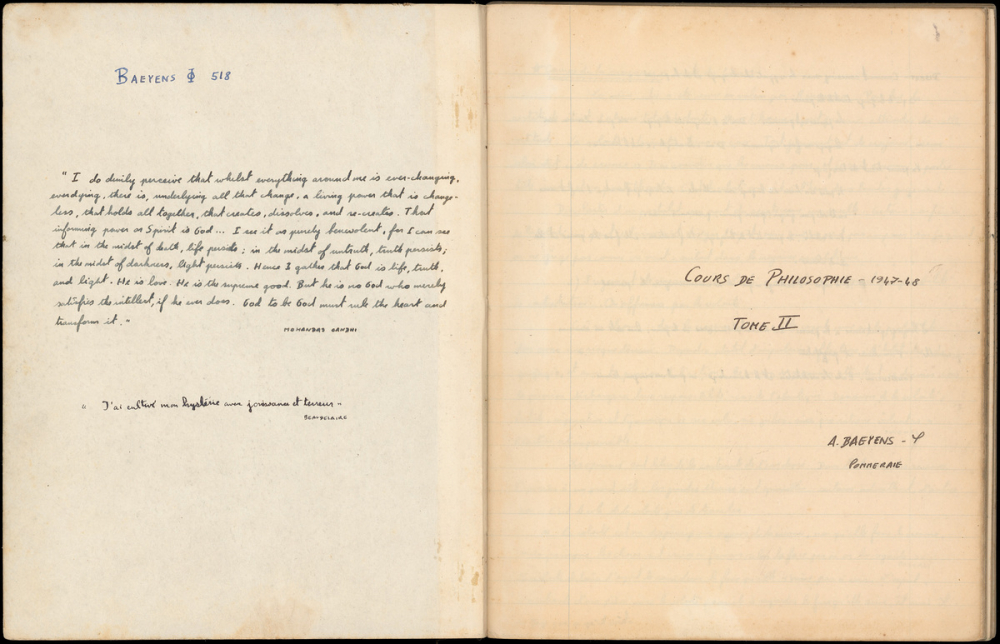 BAEYENS Φ 518
"I do dimly perceive that whilst everything around me is ever-changing,
everdying, there is, underlying all that change, a living power that is change-
less, that holds all together, that creates, dissolves, and re-creates. That
informing power or Spirit is God... I see it as purely benevolent, for I can see
that in the midst of death, life persists; in the midst of untruth, truth persists;
in the midst of darkness, light persists. Hence I gather that God is life, truth,
and light. He is love. He is the supreme good. But he is no God who merely
satisfies the intellect, if he ever does. God to be God must rule the heart and
transform it."
MOHANDAS GANDHI
"J'ai cultivé mon hystérie avec jouissance et terreur"
BEAUDELAIRE
COURS DE PHILOSOPHIE - 1947-48
TOME II
A. BAEYENS - φ
POMMERAIE